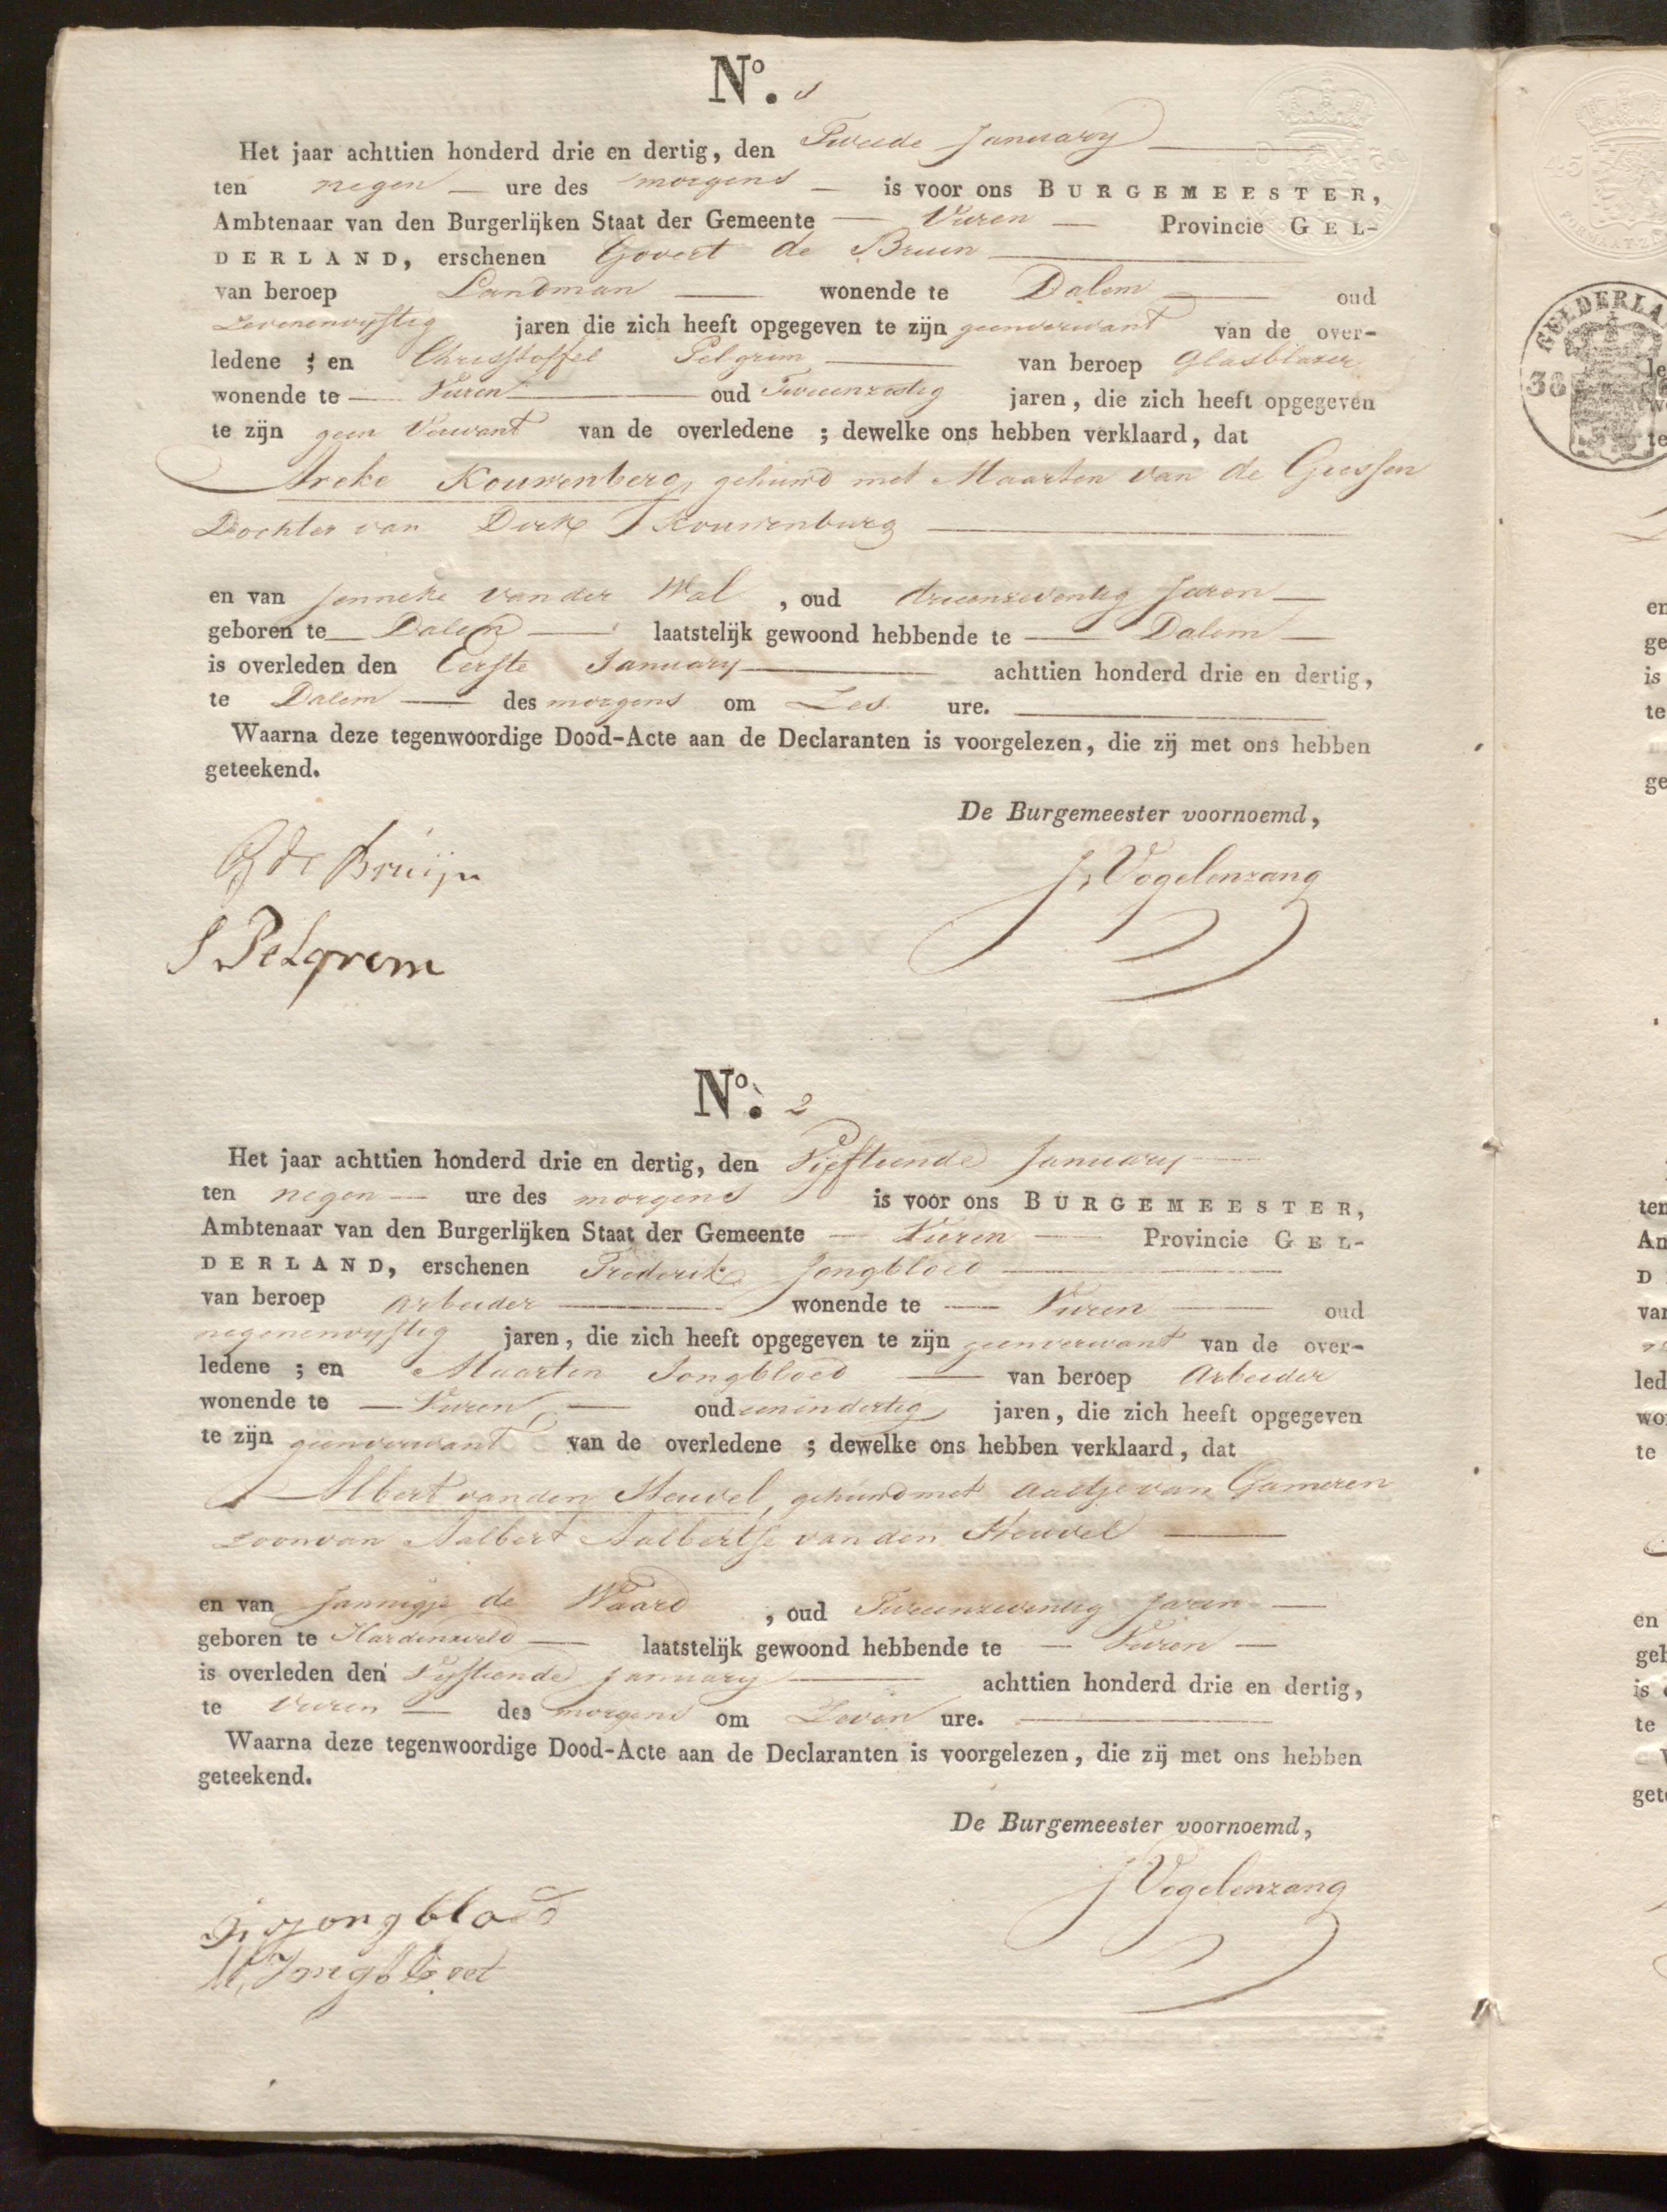 No. 1
Het jaar achttien honderd drie en dertig, den Tweede January
ten negen ure des morgens is voor ons BURGEMEESTER,
Ambtenaar van den Burgerlijken Staat der Gemeente Vuren Provincie GEL-
DERLAND, erschenen Govert de Bruin
van beroep Landman wonende te Dalem oud
zevenenvijftig jaren die zich heeft opgegeven te zijn geenverwant van de over-
ledene ; en Christoffel Pelgrim van beroep Glasblazer
wonende te Vuren oud Tweeenzestig jaren, die zich heeft opgegeven
te zijn geen Verwant van de overledene ; dewelke ons hebben verklaard, dat
Kouwenberg, gehuwd met Maarten van de Giessen
Dochter van Dirk Kouwenburg
en van Jenneke van der Wal, oud drieenzeventig Jaren
geboren te Dalem laatstelijk gewoond hebbende te Dalem
is overleden den Eerste January achttien honderd drie en dertig,
te Dalem des morgens om Zes ure.
Waarna deze tegenwoordige Dood-Acte aan de Declaranten is voorgelezen, die zij met ons hebben
geteekend.
De Burgemeester voornoemd,
G de Bruijn
J. Vogelenzang
S Pelgrem
No. 2
Het jaar achttien honderd drie en dertig, den Vijftiende January
ten negen ure des morgens is voor ons BURGEMEESTER,
Ambtenaar van den Burgerlijken Staat der Gemeente Vuren Provincie GEL-
DERLAND, erschenen Frederik Jongbloed
van beroep Arbeider wonende te Vuren oud
negenenvijftig jaren, die zich heeft opgegeven te zijn geenverwant van de over-
ledene ; en Maarten Jongbloed van beroep Arbeider
wonende te Vuren oud eenindertig jaren, die zich heeft opgegeven
te zijn geenverwant van de overledene ; dewelke ons hebben verklaard, dat
Albert van den Heuvel, gehuwd met Aaltje van Gameren
zoon van Aalbert Aalbertse van den Heuvel
en van Jannigje de Waard, oud Tweeenzeventig Jaren
geboren te Hardinxveld laatstelijk gewoond hebbende te Vuren
is overleden den Vijftiende January achttien honderd drie en dertig,
te Vuren des morgens om Zeven ure.
Waarna deze tegenwoordige Dood-Acte aan de Declaranten is voorgelezen, die zij met ons hebben
geteekend.
De Burgemeester voornoemd,
J Vogelenzang
jongbloed
M, Jongbloet
GELDERLA
38